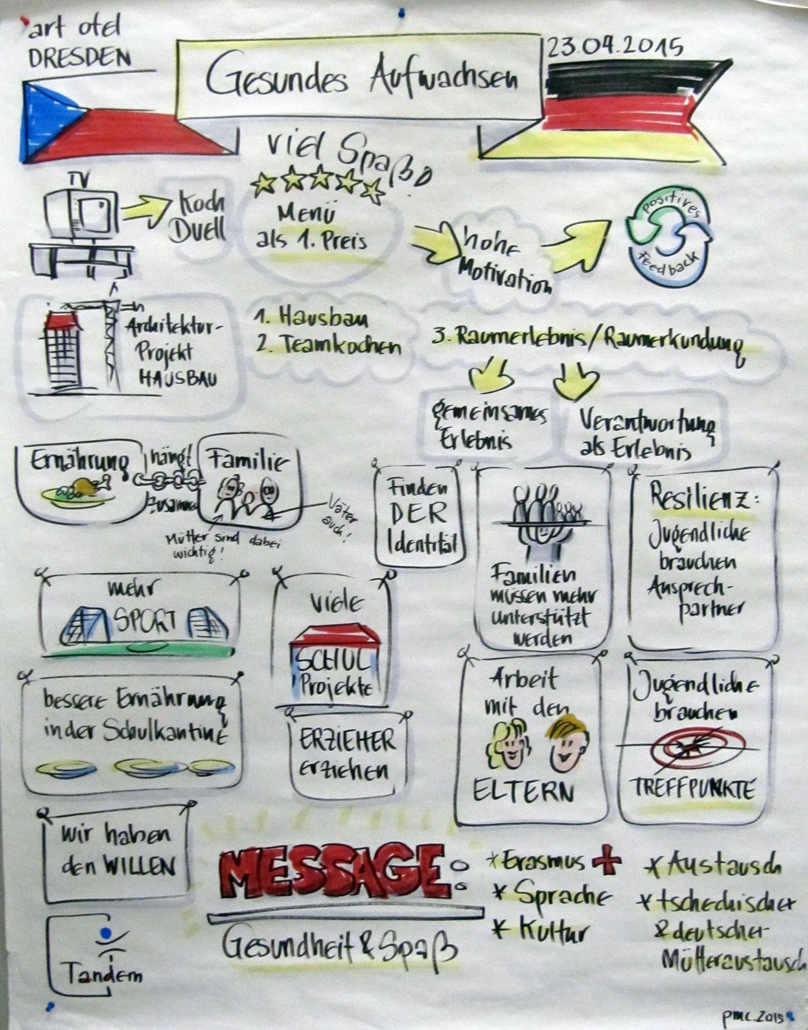 art otel
DRESDEN
Gesundes Aufwachsen
23.04.2015
viel Spaß
TV
Koch
Duell
Menü
als 1. Preis
hohe
Motivation
positives
Feedback
Architektur-
Projekt
HAUSBAU
1. Hausbau
2. Teamkochen
3. Raumerlebnis/Raumerkundung
gemeinsames
Erlebnis
Verantwortung
als Erlebnis
Ernährung
hängt
zusammen
Familie
Mütter sind dabei
wichtig!
Väter
auch!
Finden
DER
Identität
Familien
müssen mehr
unterstützt
werden
Resilienz:
Jugendliche
brauchen
Ansprech-
partner
mehr
SPORT
viele
SCHUL
Projekte
bessere Ernährung
in der Schulkantine
ERZIEHER
erziehen
Arbeit
mit den
ELTERN
Jugendliche
brauchen
TREFFPUNKTE
wir haben
den WILLEN
MESSAGE:
Gesundheit & Spaß
* Erasmus +
* Sprache
* Kultur
* Austausch
* tschechischer
& deutscher
Mütteraustausch
Tandem
pmc.2015